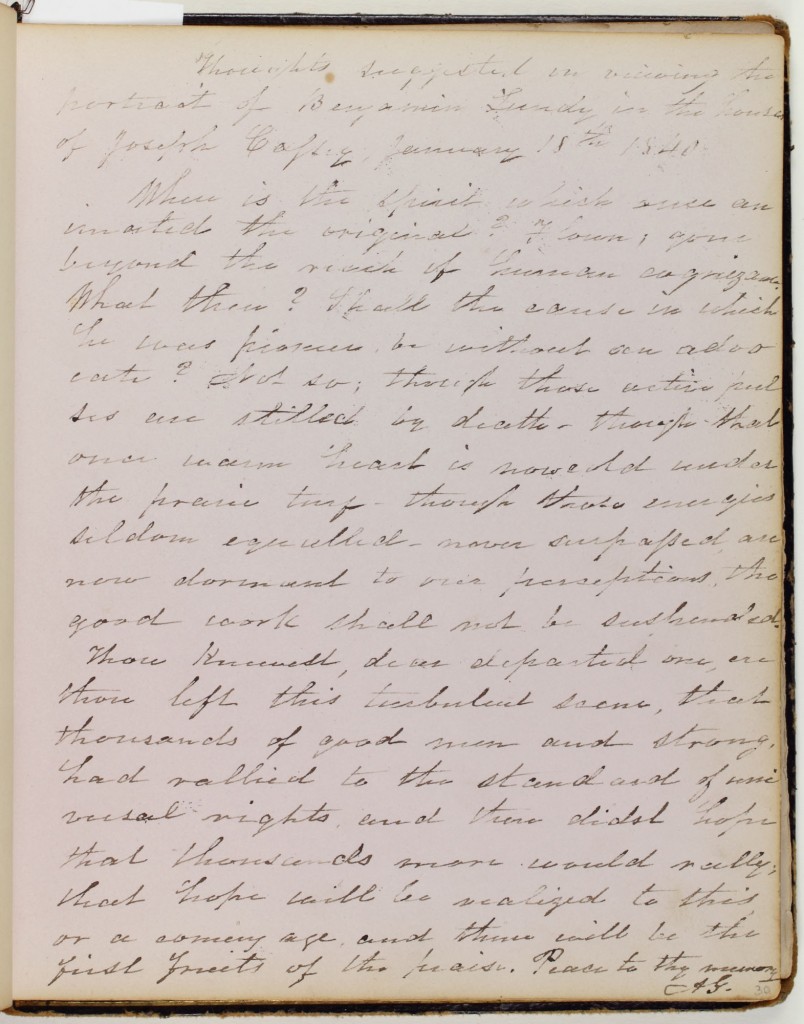 Thoughts suggested in viewing the
portrait of Benjamin Lundy in the house
of Joseph Cassey, January 18th 1840.
Where is the spirit which once an
imated the original? Flown; gone
beyond the reach of human cognizance.
What then? Shall the cause in which
he was pioneer be without an advo
cate? Not so; though those active pul
ses are stilled by death - though that
once warm heart is now cold under
the prairie turf - though those energies
seldom equalled - never surpassed, are
now dormant to our perceptions, the
good work shall not be suspended.
Thou knewest, dear departed one, ere
thou left this turbulent scene, that
thousands of good men and strong,
had rallied to the standard of uni
versal rights, and thou didst hope
that thousands more would rally;
that hope will be realized to this,
or a coming age, and thine will be the
first fruits of the praise. Peace to thy memory
30